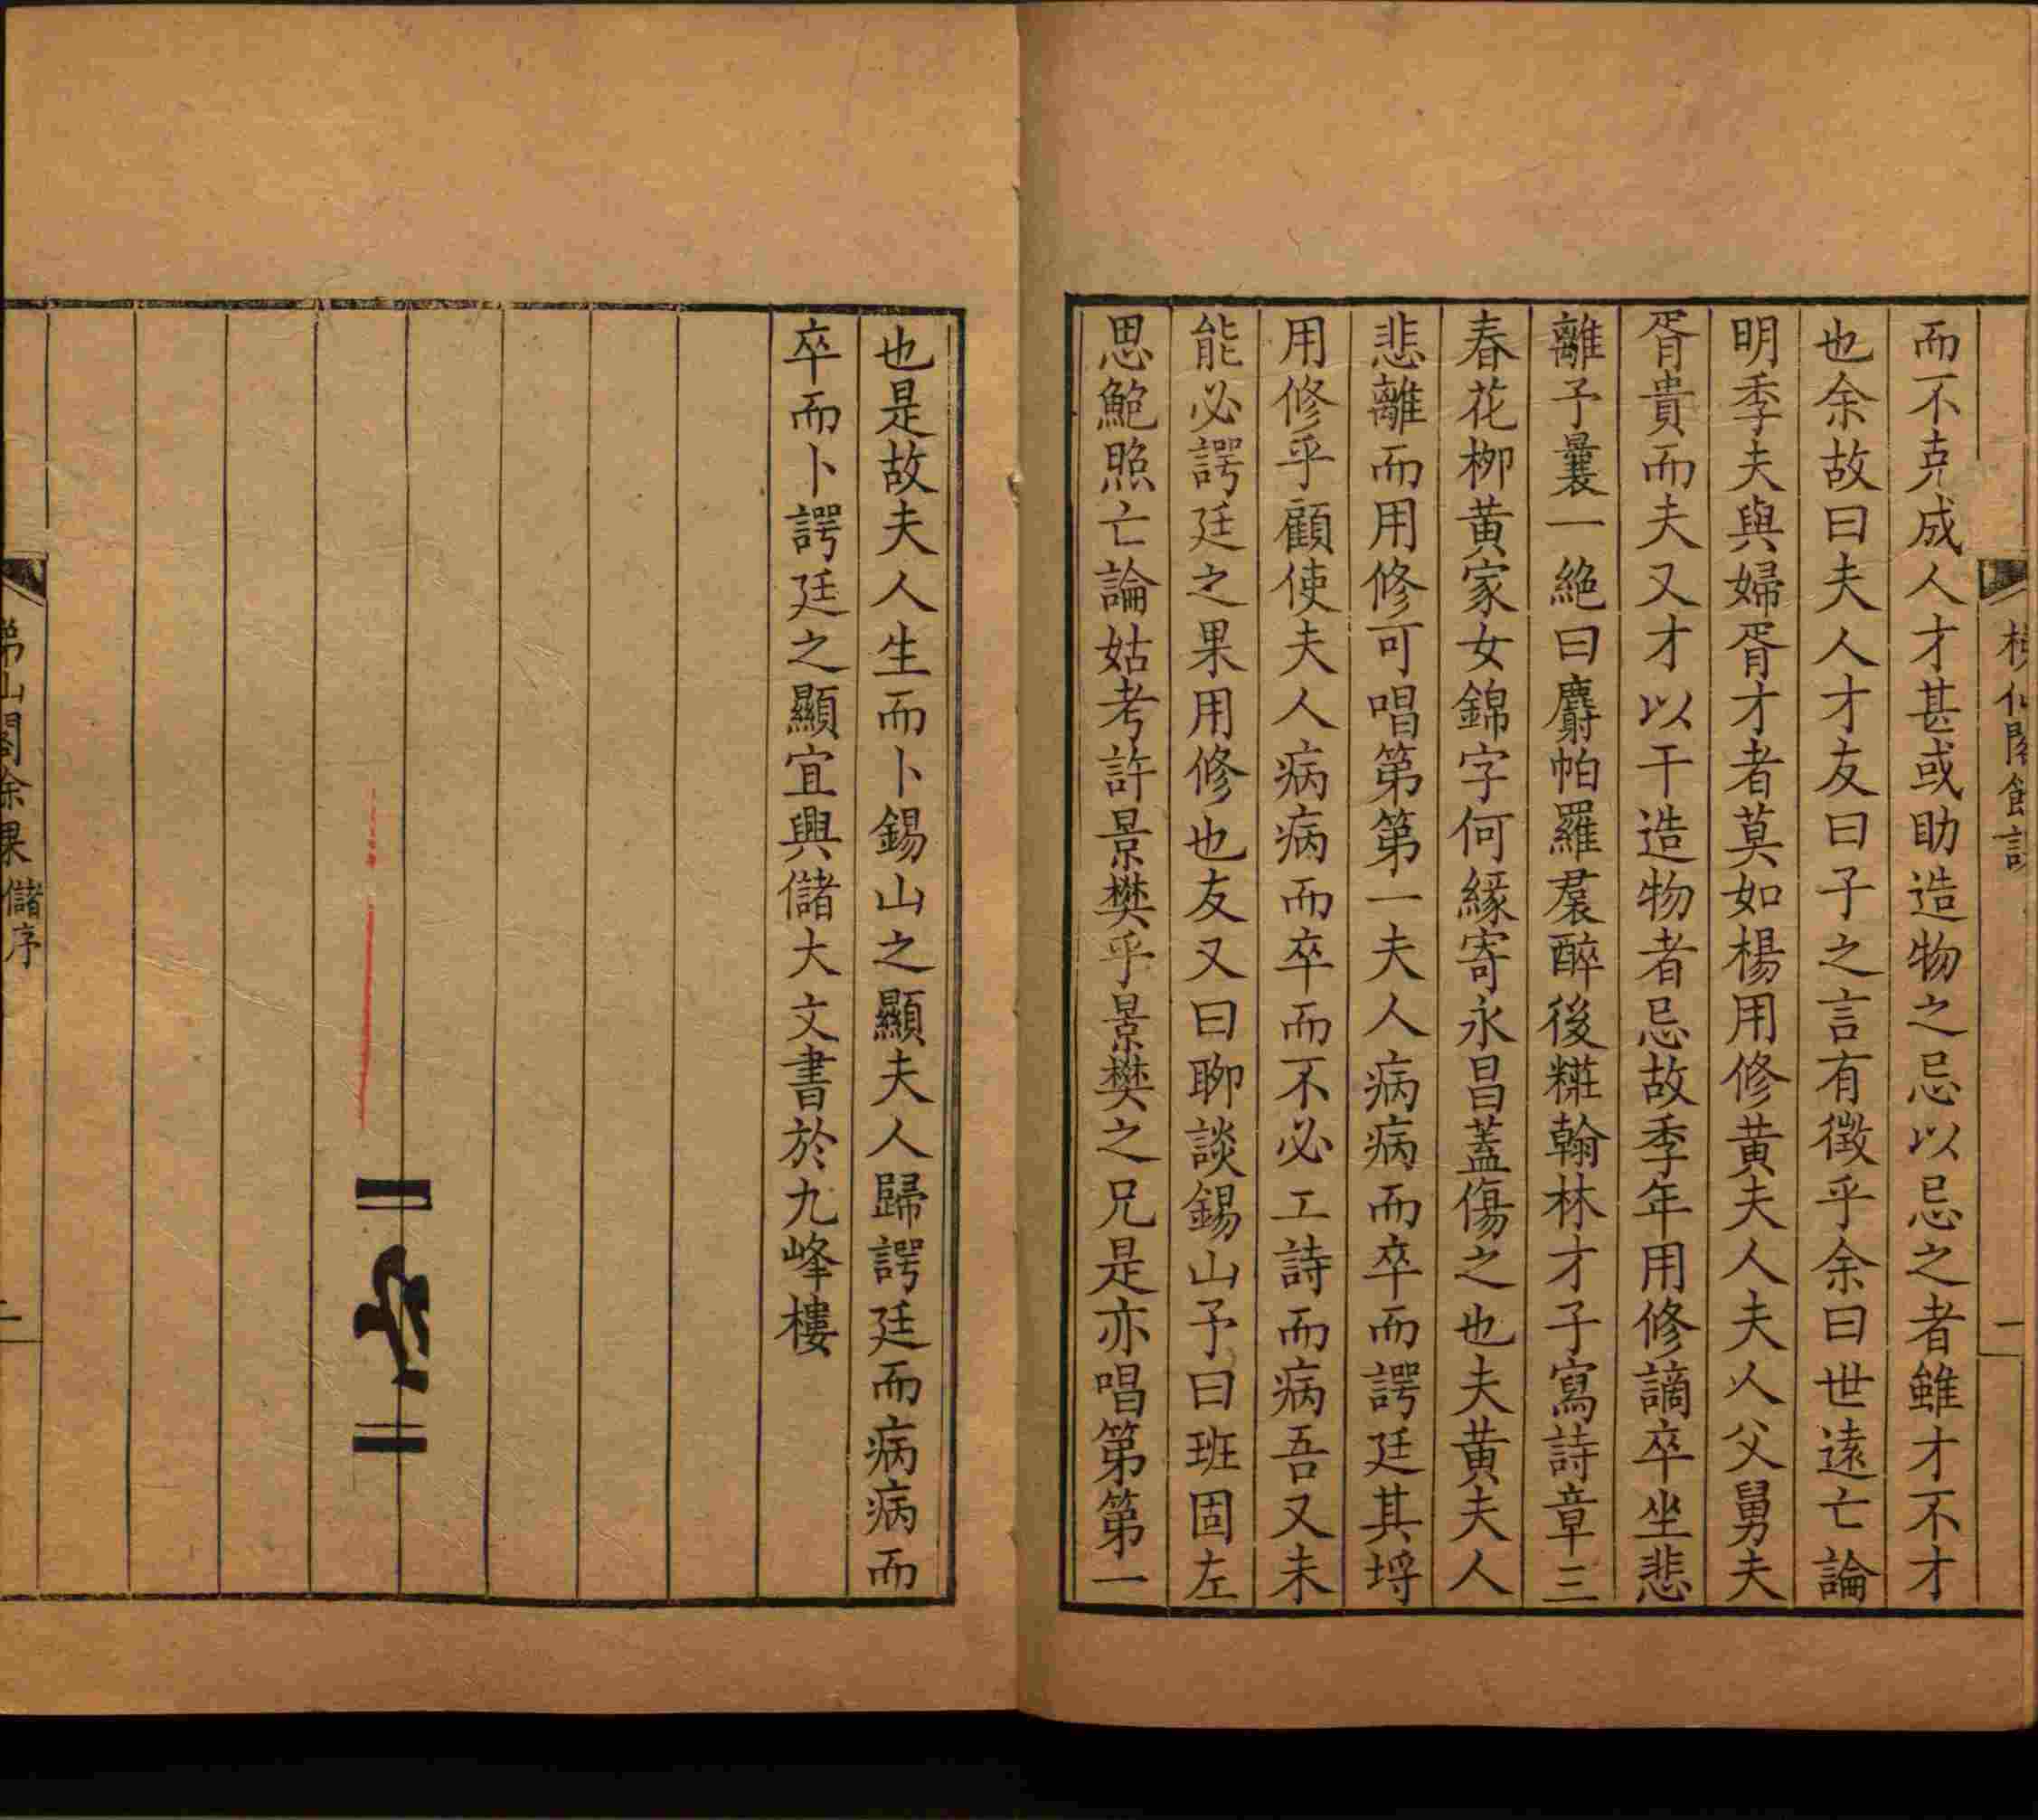 而不克成人才甚或助造物之忌以忌之者雖才不才
也余故曰夫人才友曰子之言有徵乎余曰世遠亡論
明季夫與婦胥才者莫如楊用修黃夫人夫人父舅夫
胥貴而夫又才以干造物者忌故季年用修謫卒坐悲
離予曩一絶曰麝帕羅裠醉後糚翰林才子寫詩章三
春花栁黃家女錦字何緣寄永昌蓋傷之也夫黃夫人
悲離而用修可唱第第一夫人病病而卒而諤廷其埒
用修乎顧使夫人病病而卒而不必工詩而病吾又未
能必諤廷之果用修也友又曰聊談錫山予曰班固左
思鮑照亡論姑考許景樊乎景樊之兄是亦唱第第一
也是故夫人生而卜錫山之顯夫人歸諤廷而病病而
卒而卜諤廷之顯宜興儲大文書於九峰樓
山閣餘果 儲序